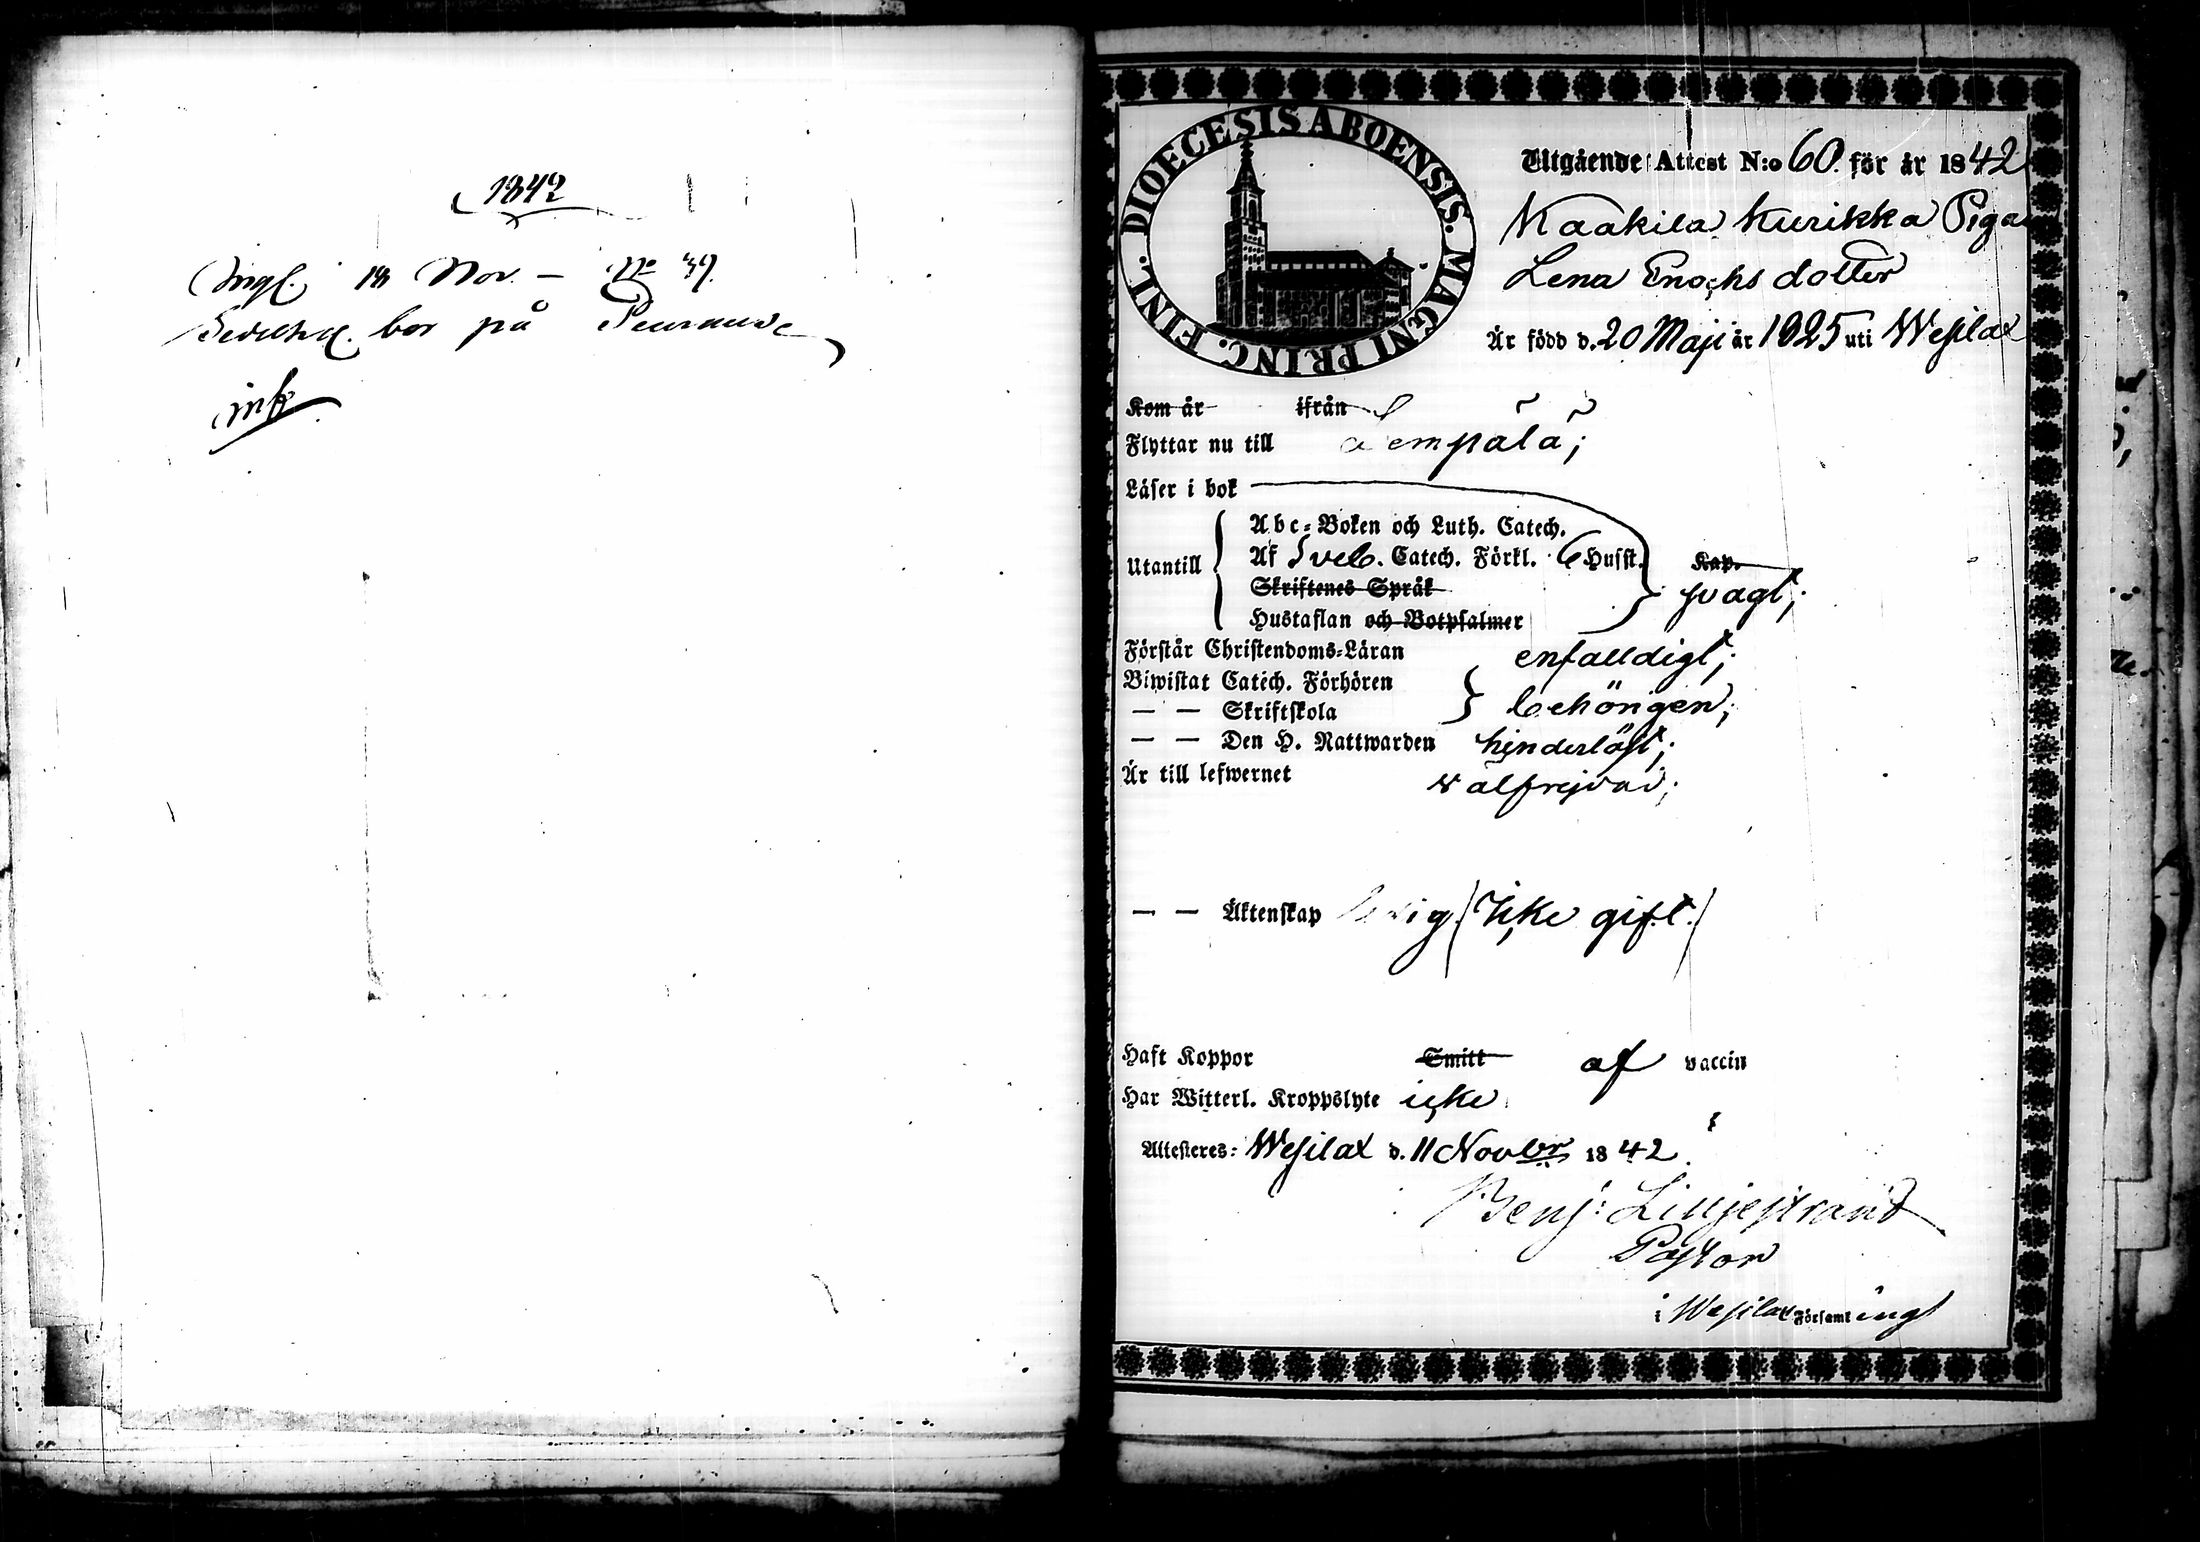 1842
Ingl. 18 Nov. — No 39.
bor på
DIOECESIS ABOENSIS. MAGNI PRINC. FINL.
Utgående Attest N:o 60. för år 1842
Kaakila Kurikka Pigan
Lena Enochs dotter
Är född d. 20 Maji år 1825 uti Wesilax
Kom år ifrån
Flyttar nu till Lempälä;
Läser i bok
Abc-Boken och Luth. Catech.
Utantill Af Sveb. Catech. Förkl. 6 Husst. Kap.
Skriftenes Språk svagt;
Hustaflan och Botpsalmer
Förstår Christendoms-Läran enfalldigt;
Biwistat Catech. Förhören
— — Skriftskola behörigen;
— — Den H. Nattwarden hinderlöst;
Är till lefwernet wälfrejdad;
— — Äktenskap ledig (icke gift.)
Haft Koppor Smitt af vaccin
Har Witterl. Kroppslyte icke
Attesteres: Wesilax d. 11 Novbr 1842.
Benj: Lilljestrand
Pastor
i Wesilax Församling